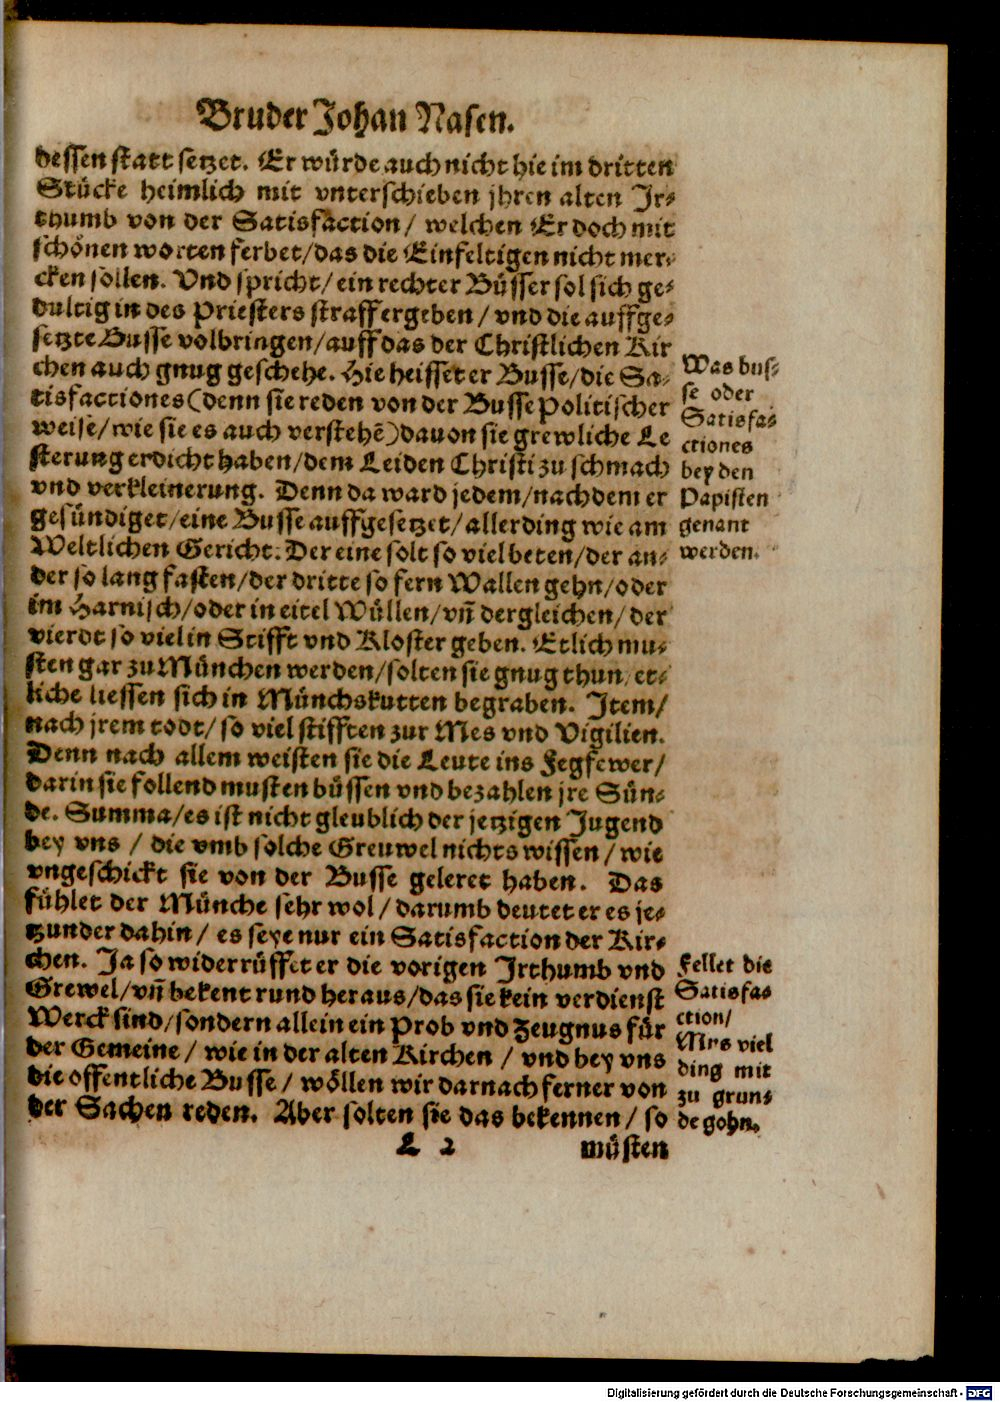 Bruder Johan Nasen.
dessen statt setzet. Er würde auch nicht hie im dritten
Stücke heimlich mit vnterschieben jhren alten Jr-
thumb von der Satisfaction/ welchen Er doch mit
schönen worten ferbet/das die Einfeltigen nicht mer-
cken sollen. Vnd spricht/ ein rechter Büsser sol sich ge-
dultig in des Priesters straff ergeben/ vnd die auffge-
setzte Busse volbringen/auff das der Christlichen Kir
chen auch gnug geschehe. Hie heisset er Busse/die Sa-
tisfactiones (denn sie reden von der Busse Politischer
weise/wie sie es auch verstehē) dauon sie grewliche Le
sterung erdicht haben/dem Leiden Christi zu schmach
vnd verkleinerung. Denn da ward jedem/nachdem er
gesündiget/eine Busse auffgesetzet/allerding wie am
Weltlichen Gericht. Der eine solt so viel beten/der an-
der so lang fasten/der dritte so fern Wallen gehn/oder
im Harnisch/oder in eitel Wüllen/vn̄ dergleichen/der
vierdt so viel in Stifft vnd Kloster geben. Etlich mu-
sten gar zu München werden/solten sie gnug thun/ et-
liche liessen sich in Münchskutten begraben. Jtem/
nach jrem todt/ so viel stifften zur Mes vnd Vigilien.
Denn nach allem weisten sie die Leute ins Fegfewer/
darin sie follend musten büssen vnd bezahlen jre Sün-
de. Summa/es ist nicht gleublich der jetzigen Jugend
bey vns / die vmb solche Greuwel nichts wissen/ wie
vngeschickt sie von der Busse geleret haben. Das
fühlet der Münche sehr wol/ darumb deutet er es je-
tzunder dahin/ es seye nur ein Satisfaction der Kir-
chen. Ja so widerrüffet er die vorigen Jrthumb vnd
Grewel/vn̄ bekent rund heraus/das sie kein verdienst
Werck sind/sondern allein ein Prob vnd Zeugnus für
der Gemeine/ wie in der alten Kirchen / vnd bey vns
die offentliche Busse/ wöllen wir darnach ferner von
der Sachen reden. Aber solten sie das bekennen/ so
L 2 müsten
Was bus-
se oder
Satisfa-
ctiones
bey den
Papisten
genant
werden.
Fellet die
Satisfa-
ction/
Mus viel
ding mit
zu grun-
de gohn.
Digitalisierung gefördert durch die Deutsche Forschungsgemeinschaft - DFG